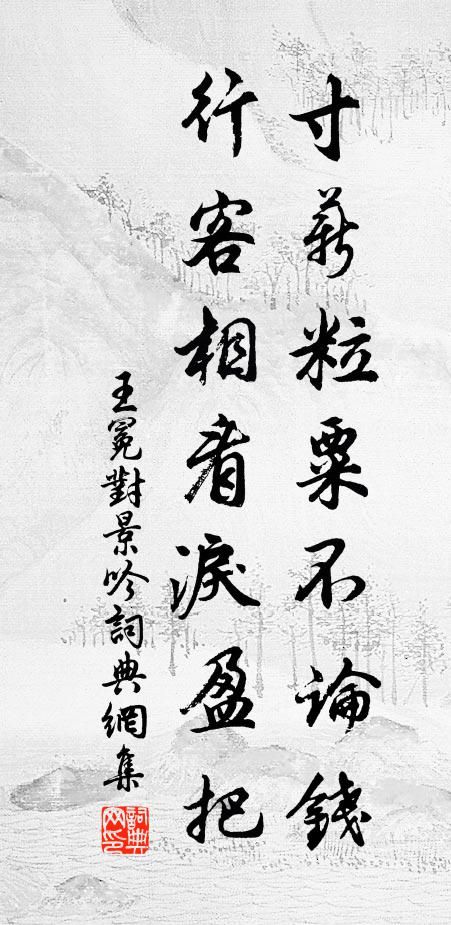 寸薪粒粟不論錢
行客相看淚盈把
王冕對景吟詞典網集
詞典
网印